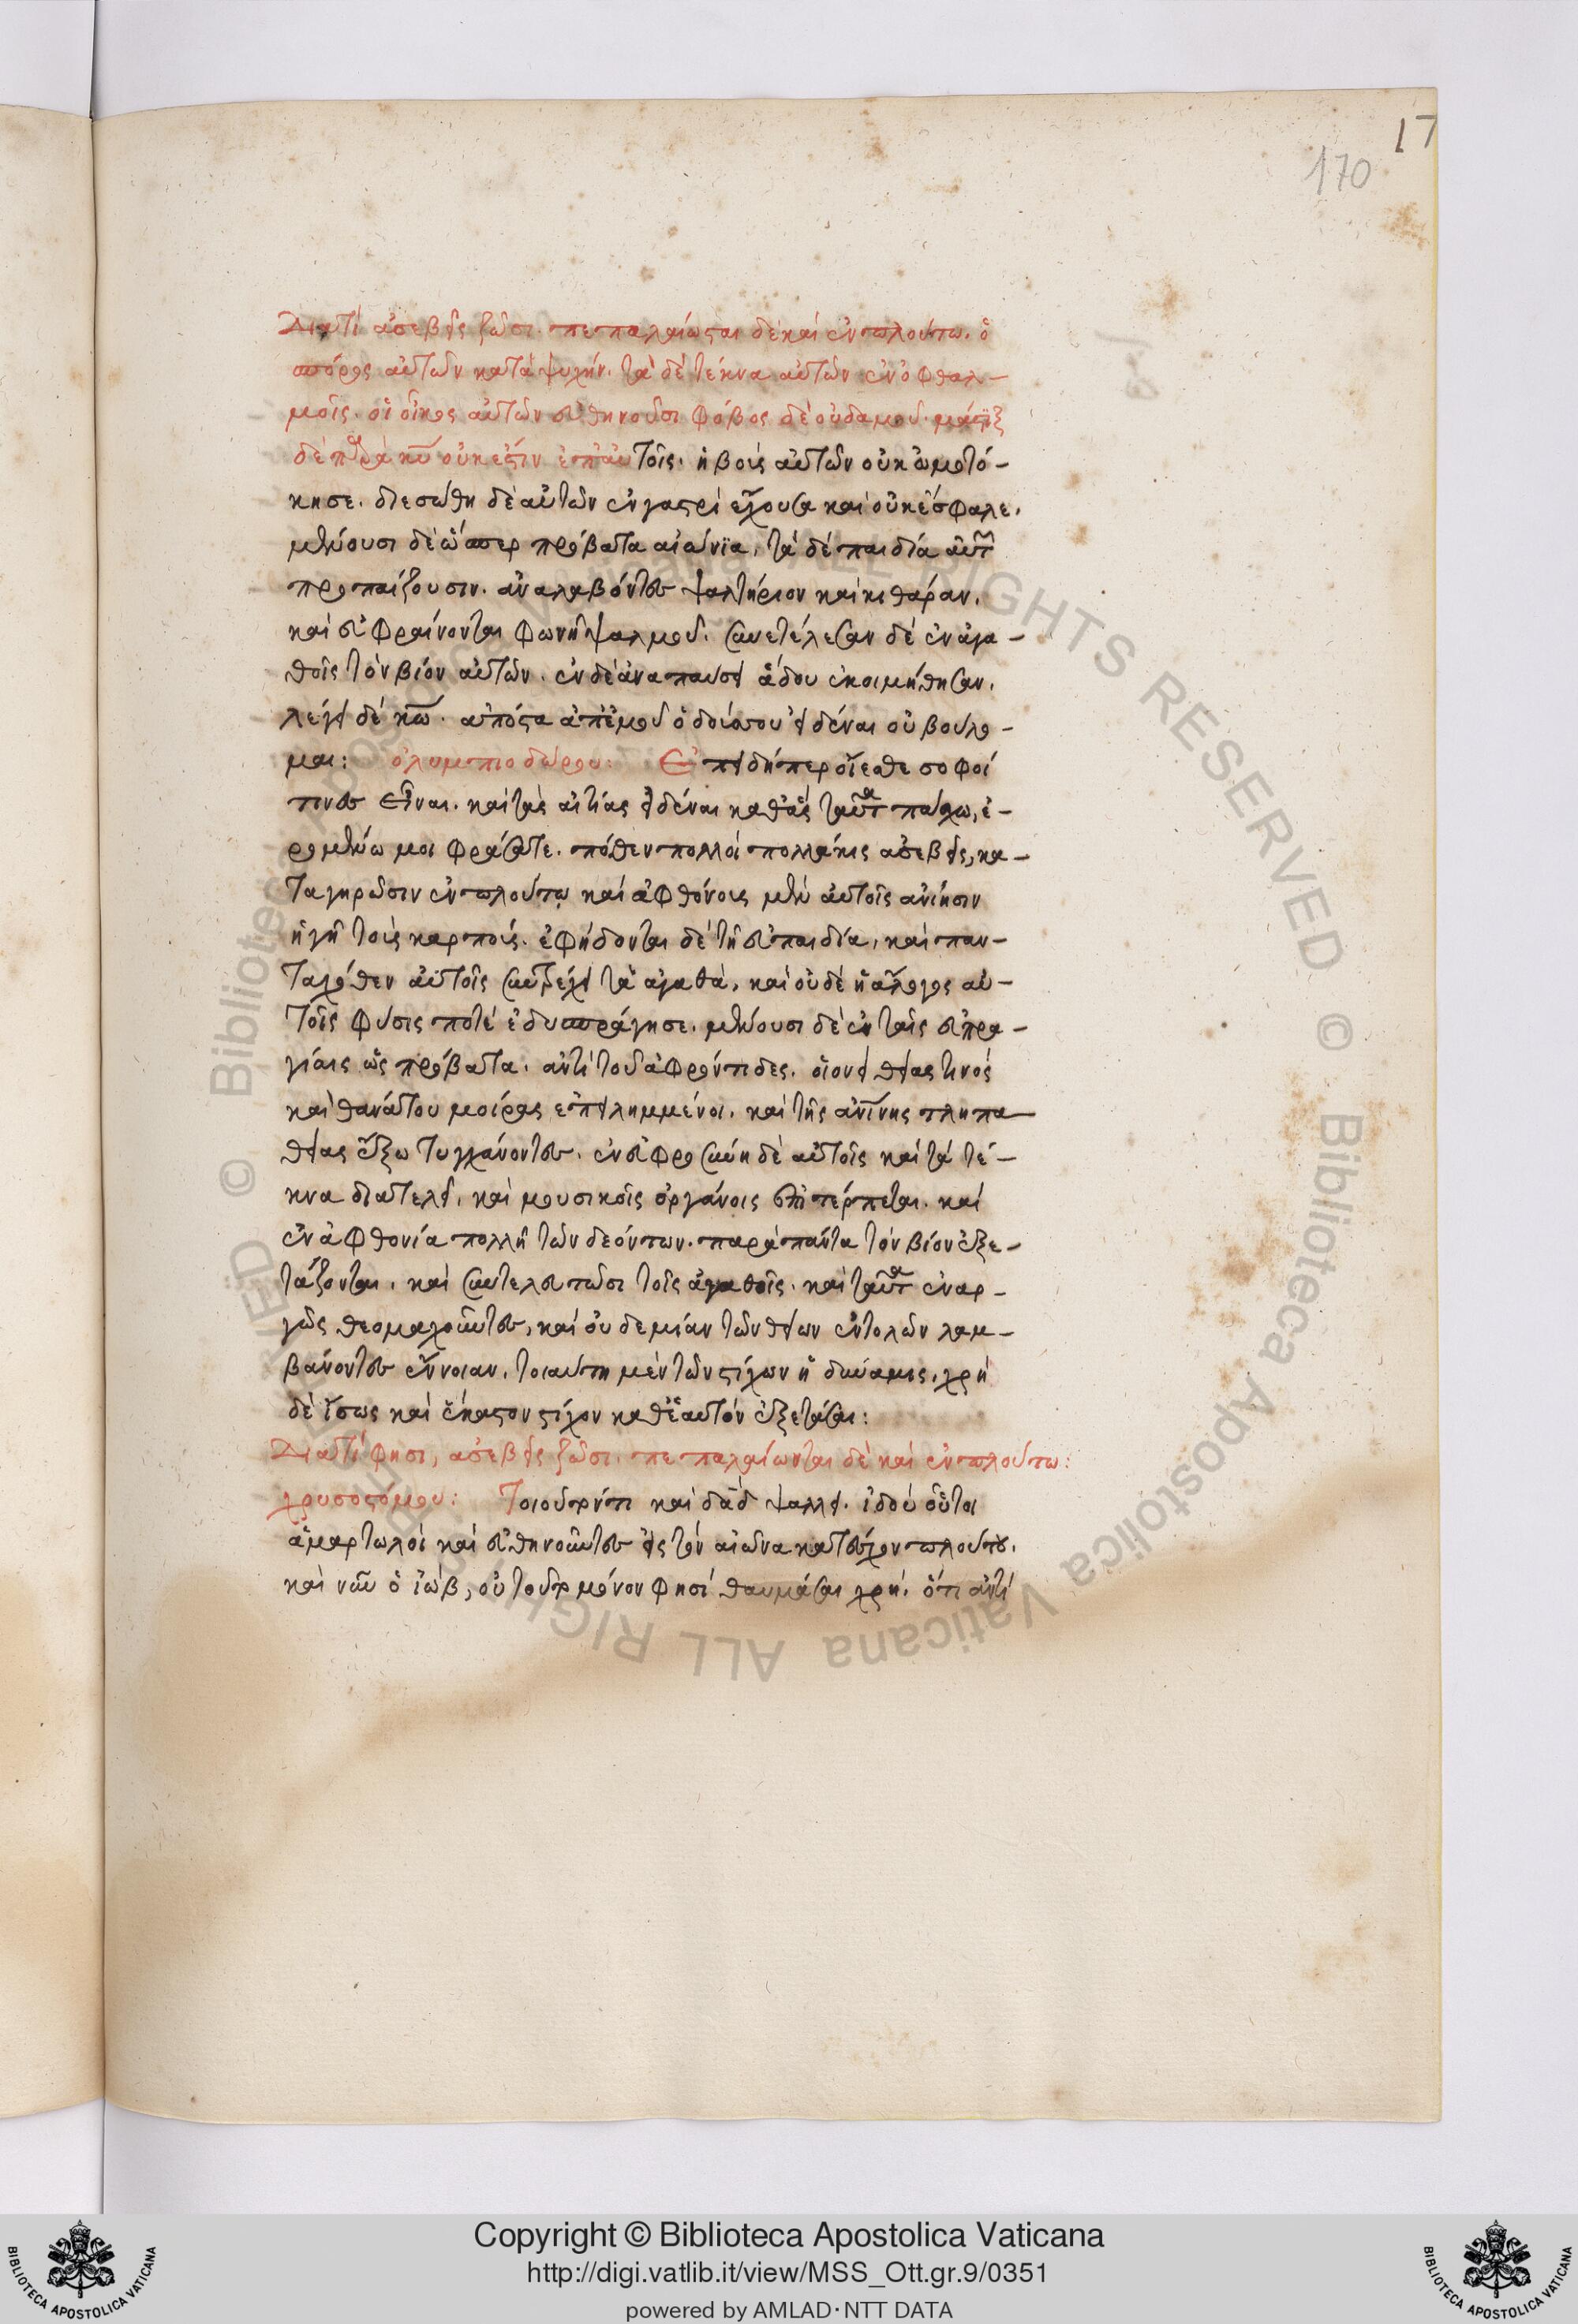 17
170
Διατί ἀσεβεῖς ζῶσι. πεπαλαίωται δὲ καὶ ἐν πλούτω. ὁ
σπόρος αὐτῶν κατὰ ψυχήν. τὰ δὲ τέκνα αὐτῶν ἐν ὀφθαλ-
μοῖς. οἱ οἶκοι αὐτῶν εὐθηνοῦσι φόβος δὲ οὐδαμοῦ. μάστιξ
δὲ παρὰ κυ οὐκ ἔστιν ἐπ' αὐτοῖς. ἡ βοῦς αὐτῶν οὐκ ὠμοτό-
κησε. διεσώθη δὲ αὐτῶν ἐν γαστρὶ ἔχουσα καὶ οὐκ ἔσφαλε.
μένουσι δὲ ὥσπερ πρόβατα αἰώνϊα, τὰ δὲ παιδία αὐτῶν
προπαίζουσιν. ἀναλαβόντες ψαλτήριον καὶ κιθάραν.
καὶ εὐφραίνονται φωνῆ ψαλμοῦ. συνετέλεσαν δὲ ἐν ἀγα-
θοῖς τὸν βίον αὐτῶν. ἐν δὲ ἀναπαύσει ἅδου ἐκοιμήθησαν.
λέγει δὲ κω. ἀπόστα ἀπ' ἐμοῦ ὁδούς σου εἰδέναι οὐ βούλο-
μαι: ὀλυμπιοδώρου: Ἐπειδήπερ οἴεσθε σοφοί
τινες εἶναι. καὶ τὰς αἰτίας εἰδέναι καθ' ἃς ταῦτα πάσχω, ἐ-
ρομένω μοι φράσατε. πόθεν πολλοὶ πολλάκις ἀσεβεῖς, κα-
ταγηρῶσιν ἐν πλούτω καὶ ἀφθόνους μὲν αὐτοῖς ἀνίησιν
ἡ γῆ τοὺς καρπούς. ἐφήδονται δὲ τῆ εὐπαιδία, καὶ παν-
ταχόθεν αὐτοῖς συντρέχει τὰ ἀγαθὰ. καὶ οὐδὲ ἡ ἄλογος αὐ-
τοῖς φύσις ποτὲ ἐδυσπράγησε. μένουσι δὲ ἐν ταῖς εὐπρα-
γίαις ὡς πρόβατα. ἀντὶ τοῦ ἀφρόντιδες. οἱονεὶ θείας τινός
καὶ θανάτου μοίρας ἐπειλημμένοι. καὶ τῆς ἀνίνης τληπα-
θείας ἔξω τυγχάνοντες. ἐν εὐφροσύνη δὲ αὐτοῖς καὶ τὰ τέ-
κνα διατελεῖ, καὶ μουσικοῖς ὀργάνοις ἐπιτέρπεται. καὶ
ἐν ἀφθονία πολλῆ τῶν δεόντων. παρὰ πάντα τὸν βίον ἐξε-
τάζονται. καὶ συντελευτῶσι τοῖς ἀγαθοῖς. καὶ ταῦτα ἐναρ-
γῶς θεομαχοῦντες, καὶ οὐδεμίαν τῶν θείων ἐντολῶν λαμ-
βάνοντες ἔννοιαν. τοιαύτη μὲν τῶν στίχων ἡ δύναμις. χρὴ
δὲ ἴσως καὶ ἕκαστον στίχον καθ' ἑαυτὸν ἐξετάσαι:
Διατί φησι, ἀσεβεῖς ζῶσι. πεπαλαίωνται δὲ καὶ ἐν πλούτω:
χρυσοστόμου: Τοιοῦτόν τι καὶ δαδ ψάλλει. ἰδοὺ οὗτοι
ἁμαρτωλοὶ καὶ εὐθηνοῦντες εἰς τὸν αἰῶνα κατέσχον πλούτου.
καὶ νῦν ὁ ἰώβ, οὐ τοῦτο μόνον φησὶ θαυμάσαι χρή. ὅτι ἀντὶ
Copyright © Biblioteca Apostolica Vaticana
http://digi.vatlib.it/view/MSS_Ott.gr.9/0351
powered by AMLAD·NTT DATA